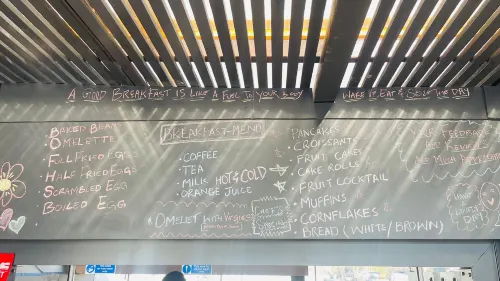 A GOOD BREAKFAST IS LIKE A FUEL TO YOUR BODY
WAKE UP EAT & SEIZE THE DAY
BAKED BEANS
OMELETTE
FULL FRIED EGGS
HALF FRIED EGGS
SCRAMBLED EGG
BOILED EGG
BREAKFAST-MENU
COFFEE
TEA
MILK HOT & COLD
ORANGE JUICE
OMELET WITH
PANCAKE
CROISSANTS
FRUIT CAKES
CAKE ROLLS
FRUIT COCKTAIL
MUFFINS
CORNFLAKES
BREAD (WHITE/BROWN)
YOUR FEEDBACK
AND REVIEWS
DAY